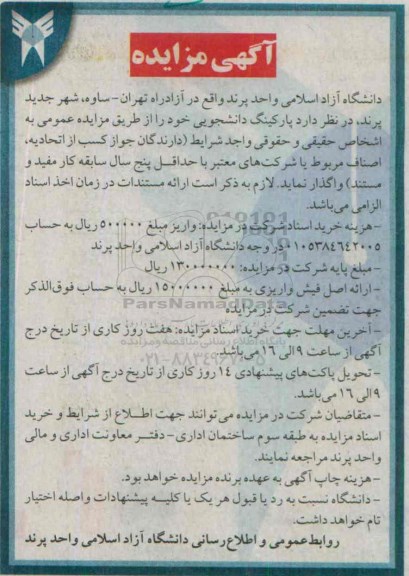 آگهی مزایده
دانشگاه آزاد اسلامی واحد پرند واقع در آزادراه تهران-ساوه، شهر جدید
پرند، در نظر دارد پارکینگ دانشجویی خود را از طریق مزایده عمومی به
اشخاص حقیقی و حقوقی واجد شرایط (دارندگان جواز کسب از اتحادیه،
اصناف مربوط یا شرکت‌های معتبر با حداقل پنج سال سابقه کار مفید و
مستند) واگذار نماید. لازم به ذکر است ارائه مستندات در زمان اخذ اسناد
الزامی می‌باشد.
-هزینه خرید اسناد شرکت در مزایده: واریز مبلغ ۵۰۰۰۰۰ ریال به حساب
۰۱۰۵۳۸۴۶۴۲۰۰۵ در وجه دانشگاه آزاد اسلامی واحد پرند
-مبلغ پایه شرکت در مزایده: ۱۳۰۰۰۰۰۰۰ ریال
-ارائه اصل فیش واریزی به مبلغ ۱۵۰۰۰۰۰۰ ریال به حساب فوق‌الذکر
جهت تضمین شرکت در مزایده
-آخرین مهلت جهت خرید اسناد مزایده: هفت روز کاری از تاریخ درج
آگهی از ساعت ۹ الی ۱۶ می‌باشد.
-تحویل پاکت‌های پیشنهادی ۱۴ روز کاری از تاریخ درج آگهی از ساعت
۹ الی ۱۶ می‌باشد.
-متقاضیان شرکت در مزایده می‌توانند جهت اطلاع از شرایط و خرید
اسناد مزایده به طبقه سوم ساختمان اداری-دفتر معاونت اداری و مالی
واحد پرند مراجعه نمایند.
-هزینه چاپ آگهی به عهده برنده مزایده خواهد بود.
-دانشگاه نسبت به رد یا قبول هر یک یا کلیه پیشنهادات واصله اختیار
تام خواهد داشت.
روابط‌عمومی و اطلاع‌رسانی دانشگاه آزاد اسلامی واحد پرند
ParsNamadData
پایگاه اطلاع رسانی مناقصه و مزایده